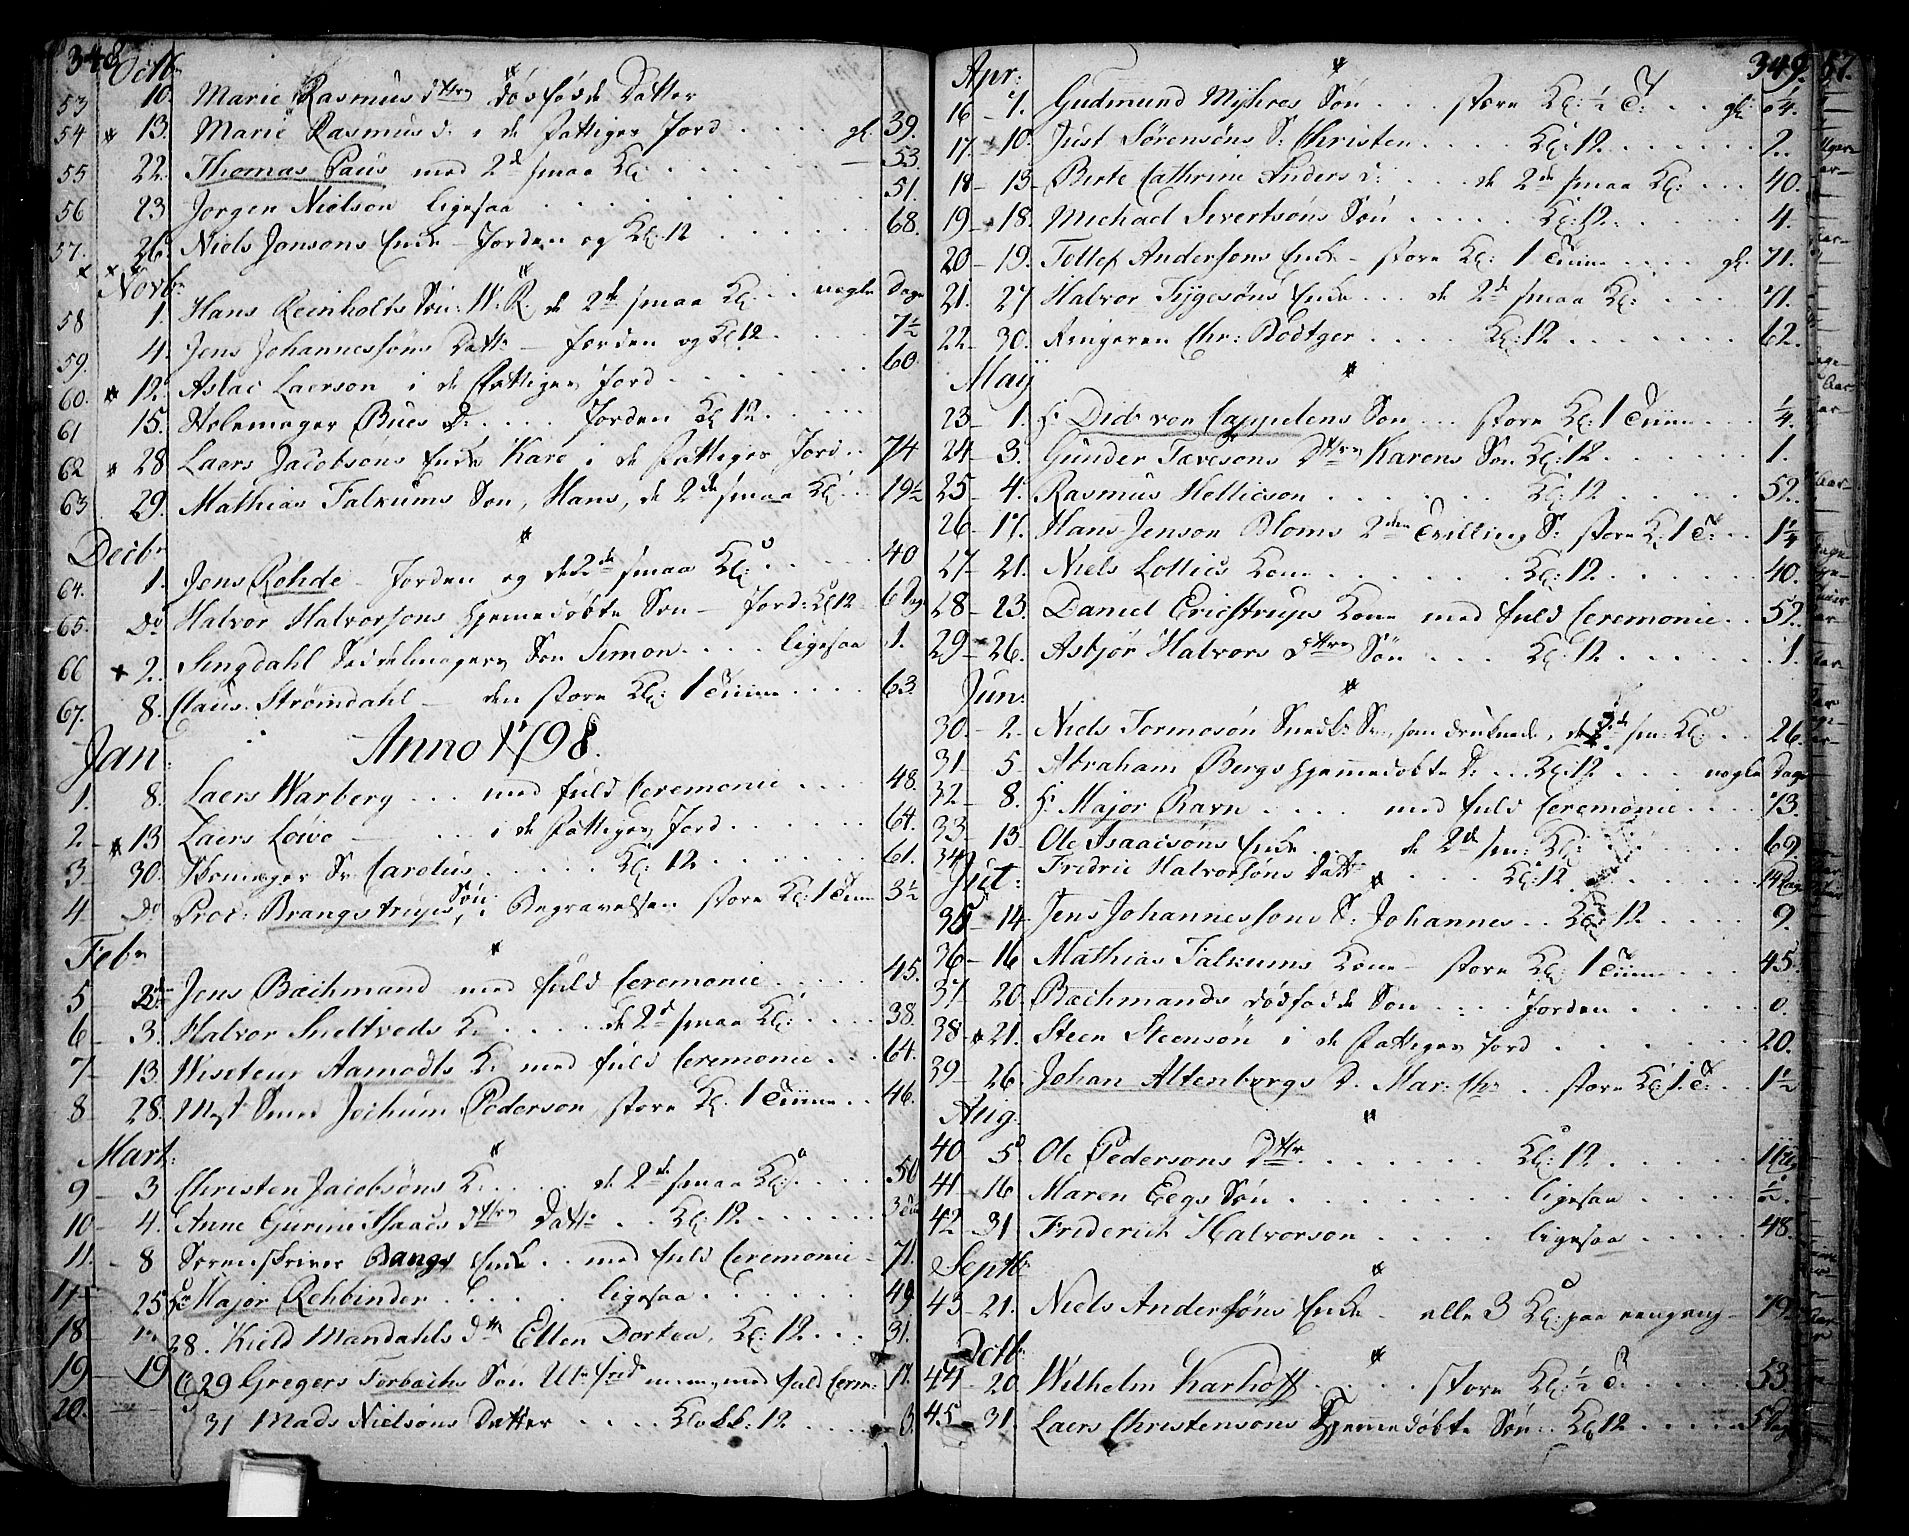 348.
Octbr
53 10. Marie Rasmus dttrs dødfødde Datter
54 * 13. Marie Rasmusd. i de fattiges Jord . . . . gl. 39.
55 22. Thomas Paus med 2de smaa Kl: . . . . — 53.
56 23 Jørgen Nielsen ligesaa . . . . 51.
57. 26. Niels Jensens Enke — Jorden og Kl: 12 . . . . 68.
Novbr
58 1. Hans Reinholts Søn: W: R. de 2de smaa Kl: . . nogle Dage
59. 4. Jens Johannessøns Datter — Jorden og Kl. 12 . . . . 7½
60. * 12. Aslac Laersen i de Fattiges Jord . . . . 60.
61 15. Bues D. . . . . Jorden Kl 12 . . . .
62 * 28. Laers Jacobsøns Enke Kari i de Fattiges Jord . . 74
63 29. Mathias Falkums Søn, Hans, de 2de smaa Kl: . . 19½
Decbr
64. 1. Jens Rohde — Jorden og de 2de smaa Kl: . . . . 40
65. Do Halvor Halvorsøns hjemmedøbte Søn — Jord: Kl 12 6 Dag
66 + 2. Søn Simon . . . . ligesaa 1.
67. 8. Claus Strømdahl — den store Kl: 1 Time . . . . 63.
Anno 1798.
Jan:
1. 8. Laers Warberg . . . med fuld Ceremonie . . . . 48.
2 — * 13 Laers Löwe — . . . i de fattiges Jord . . . . 64.
3 — 30. Skomager Sr. Carolus . . . . Kl: 12 . . . . 61.
4 Do Proc: Brangstrups Søn, i Begravelsen store Kl: 1 Time 3½
Febr
5 2den Jens Bachmand med fuld Ceremonie . . . . 45.
6 — 3. Halvor Sneltveds K. . . . . de 2de smaa Kl: . . . . 38.
7 — 13. Aamodts K. med fuld Ceremonie . . . 64.
8 — 28. Mest Smed Jochum Pedersen, store Kl: 1 Time . . 46.
Mart:
9 — 3 Christen Jacobsøns K. . . . . de 2de smaa Kl: . . . . 50
10 — 4. Anne Gurine Isaacs dttrs Datter . . Kl: 12 . . . .
11. — 8 Sorenskriver Bangs Enke . . med fuld Ceremonie — 71.
25 Hr Major Rehbinder . . . . ligesaa . . . . 49.
18 — 28. Kield Mandahls dttr Ellen Dortea, Kl: 12 . . . 31.
19 — 29 Gregers Torbachs Søn med fuld Cerm: 17.
20. 31 Mads Nielsøns Datter . . . . Klokk: 12 . . . . 3.
349.
Apr:
16 — 7. Gudmund Myhres Søn . . . store Kl: ½ T. . . gl: ¼.
17. 10. Just Sørensøns S: Christen . . . . Kl: 12 . . . . 2.
18 — 13 — Berte Cathrine Anders d: . . . de 2de smaa Kl: . . . 40.
19 — 18. Michael Sivertsøns Søn . . . . Kl: 12 . . . . 4.
20 — 19. Tollef Andersons Enke — store Kl: 1 Time . . . . gl: 71.
21. 27 Halvor Tygesøns Enke . . . de 2de smaa Kl: . . . 71.
22 — 30. Ringeren Chr: Bødtger . . . . Kl: 12 . . . . 62.
Maij
23 — 1. Hr Did: von Cappelens Søn . . . store Kl: 1 Time . . . ¼.
24 — 3. Gunder Tavesons Dttrs Karens Søn Kl: 12 . . . . 1.
25 — 4. Rasmus Hellicson . . . . Kl: 12 . . . . 52.
26 — 17. Hans Jenson Bloms 2den Tvilling S: store Kl 1 T. . . 1¼
27 — 21. Niels Lollics Kone . . . . Kl: 12 . . . . 40.
28 — 23. Daniel Ericstrups Kone med fuld Ceremonie . . 52.
29 — 26. Asbjør Halvors dttrs Søn . . . Kl: 12 . . . . 1.
Jun:
30. — 2. Niels Tormosøn Snedk: Sv: som druknede, de 2de sm: Kl: . . 26.
31 — 5. Abraham Bergs hjemmedøbte D. . . . Kl: 12 . . . nogle Dage
32 — 8. Hr Major Ravn . . . . med fuld Ceremonie . . . 73.
33 — 13 Ole Isaacsøns Enke . . . de 2de sm: Kl: . . . 69.
34 Fredric Halvorsøns Datter . . . Kl: 12 . . . . 14 Dage
Jul:
35 — 14. Jens Johannessøns S: Johannes . . Kl: 12 . . . . 9.
36 — 16 Mathias Falkums Kone — store Kl: 1 Time . . . 45.
37 — 20. Bachmands dødfødde Søn . . . Jorden . . . . 0.
38 — * 21. Steen Steensøn i de fattiges Jord . . . . 20.
39 — 26 Johan Altenborgs D. Mar: Chr . . store Kl: 1 T: . . 1½
Aug.
40 5. Ole Pedersøns Dttr . . . . Kl: 12 . . . .
41 — 16 Maren Eegs Søn . . . . ligesaa . . . . ½.
42 — 31 Friderich Halvorson . . . . ligesaa . . . . 48.
Septbr
43 — 21. Niels Andersøns Enke — alle 3 Kl: paa eengang — 79.
Octbr
44 — 20. Wilhelm Karhoff . . . . store Kl: ½ T: . . . . 53.
45 — 31. Laers Christensøns hjemmedøbte Søn . . Kl: 12 . . . . 5 Dage